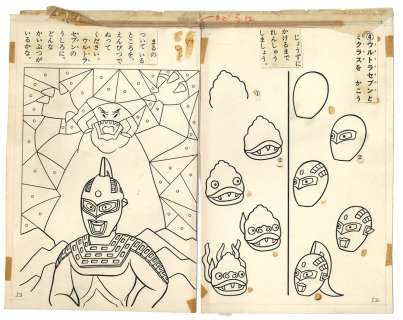 ④ウルトラセブンと
ミクラスを　かこう
じょうずに
かけるまで
れんしゅう
しましょう。
①
②
まるの
ついている
ところを、
えんぴつで
ぬって
ください。
ウルトラ
セブンの
うしろに、
どんな
かいぶつが
いるかな。